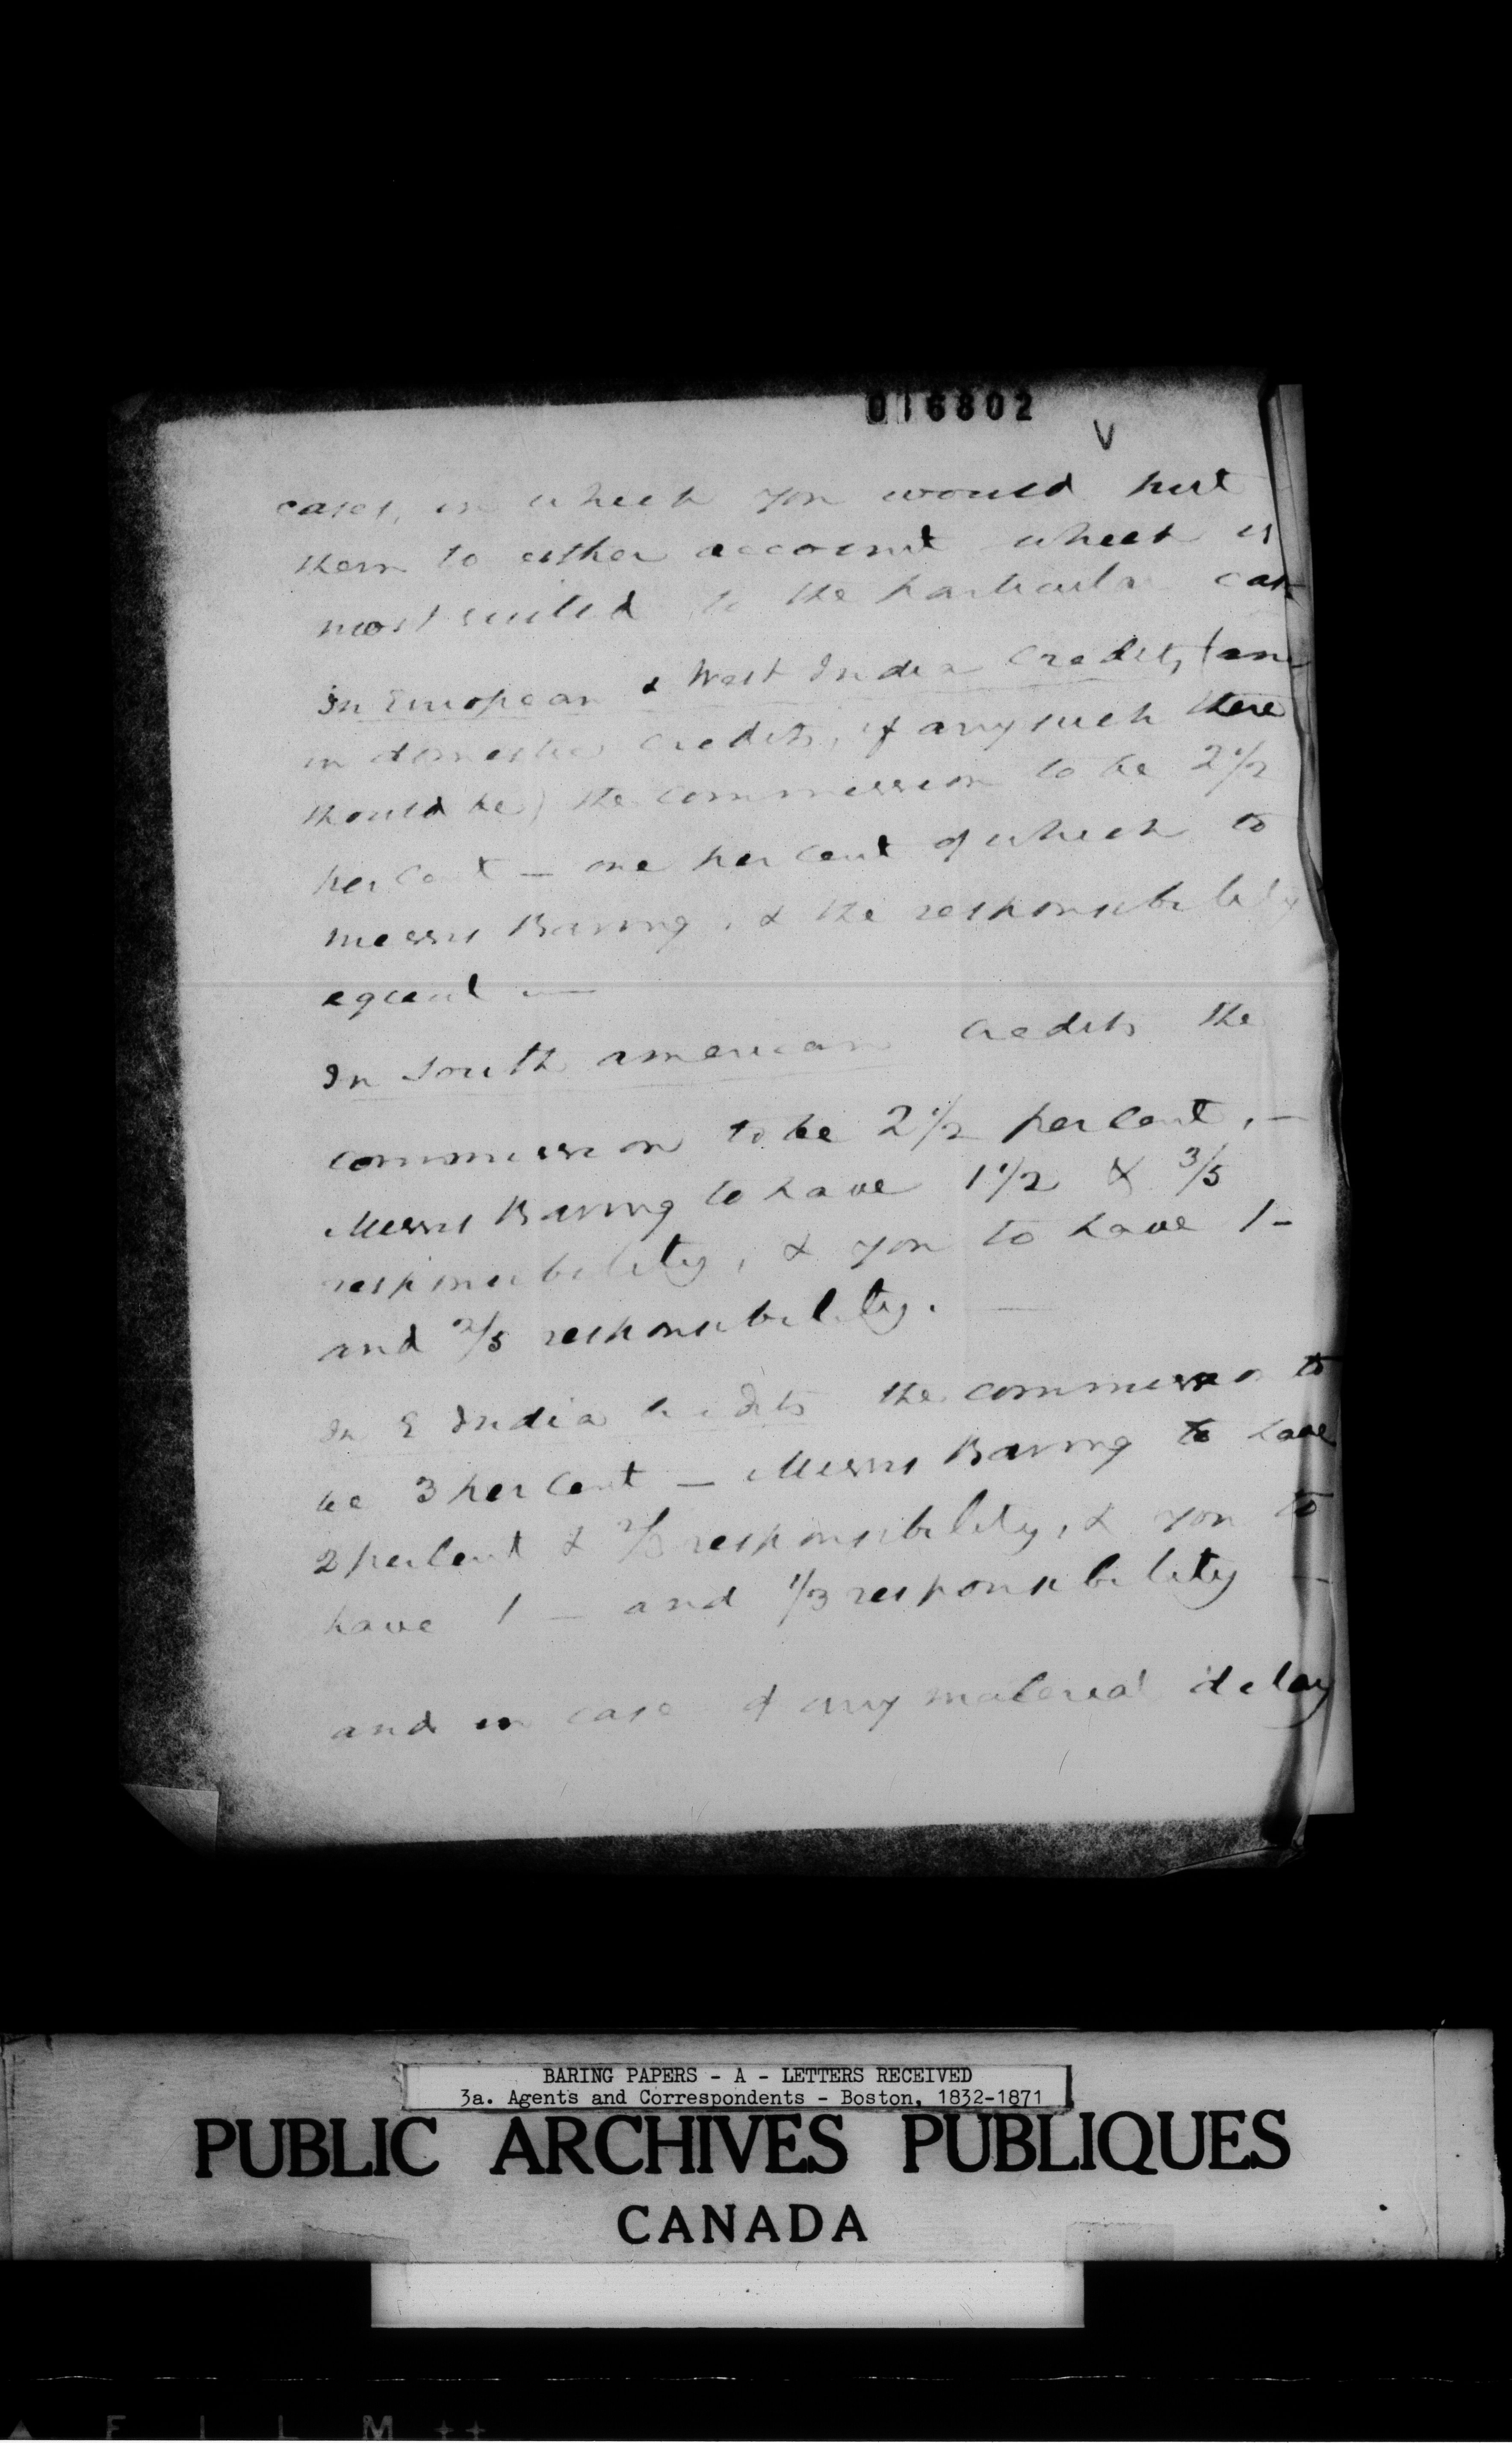 016802
V
cases, in which you would put
them to either account which is
most suited to the particular case
In European & West India Credits, (and
in domestic credits, if any such there
should be) the commission to be 2 1/2
per cent — one per cent of which to
Messrs Baring, & the responsibility
equal —
In South american Credits the
commission to be 2 1/2 per Cent, —
Messrs Baring to have 1 1/2 & 3/5
responsibility, & you to have 1 —
and 2/5 responsibility. —
In E India Credits the commission to
be 3 per Cent — Messrs Baring to have
2 per Cent & 2/3 responsibility, & you to
have 1 — and 1/3 responsibility —
and in case of any material delay
BARING PAPERS - A - LETTERS RECEIVED
3a. Agents and Correspondents - Boston, 1832-1871
PUBLIC ARCHIVES PUBLIQUES
CANADA
FILM ++